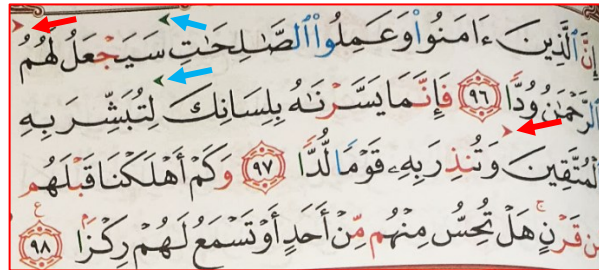 إِنَّ ٱلَّذِينَ ءَامَنُوا۟ وَعَمِلُوا۟ ٱلصَّـٰلِحَـٰتِ سَيَجۡعَلُ لَهُمُ
ٱلرَّحۡمَـٰنُ وُدࣰّا ٩٦ فَإِنَّمَا يَسَّرۡنَـٰهُ بِلِسَانِكَ لِتُبَشِّرَ بِهِ
ٱلۡمُتَّقِينَ وَتُنذِرَ بِهِۦ قَوۡمࣰا لُّدࣰّا ٩٧ وَكَمۡ أَهۡلَكۡنَا قَبۡلَهُم
مِّن قَرۡنٍ هَلۡ تُحِسُّ مِنۡهُم مِّنۡ أَحَدٍ أَوۡ تَسۡمَعُ لَهُمۡ رِكۡزَۢا ٩٨